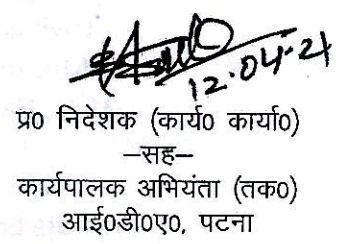 12.04.21
प्र0 निदेशक (कार्य0 कार्या0)
–सह–
कार्यपालक अभियंता (तक0)
आई0डी0ए0, पटना